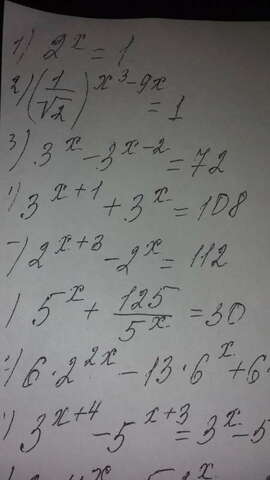 1) 2^x = 1
2) (1/√2)^(x^3-9x) = 1
3) 3^x - 3^(x-2) = 72
) 3^(x+1) + 3^x = 108
) 2^(x+3) - 2^x = 112
) 5^x + 125/5^x = 30
) 6·2^(2x) - 13·6^x + 6·
) 3^(x+4) - 5^(x+3) = 3^x - 5